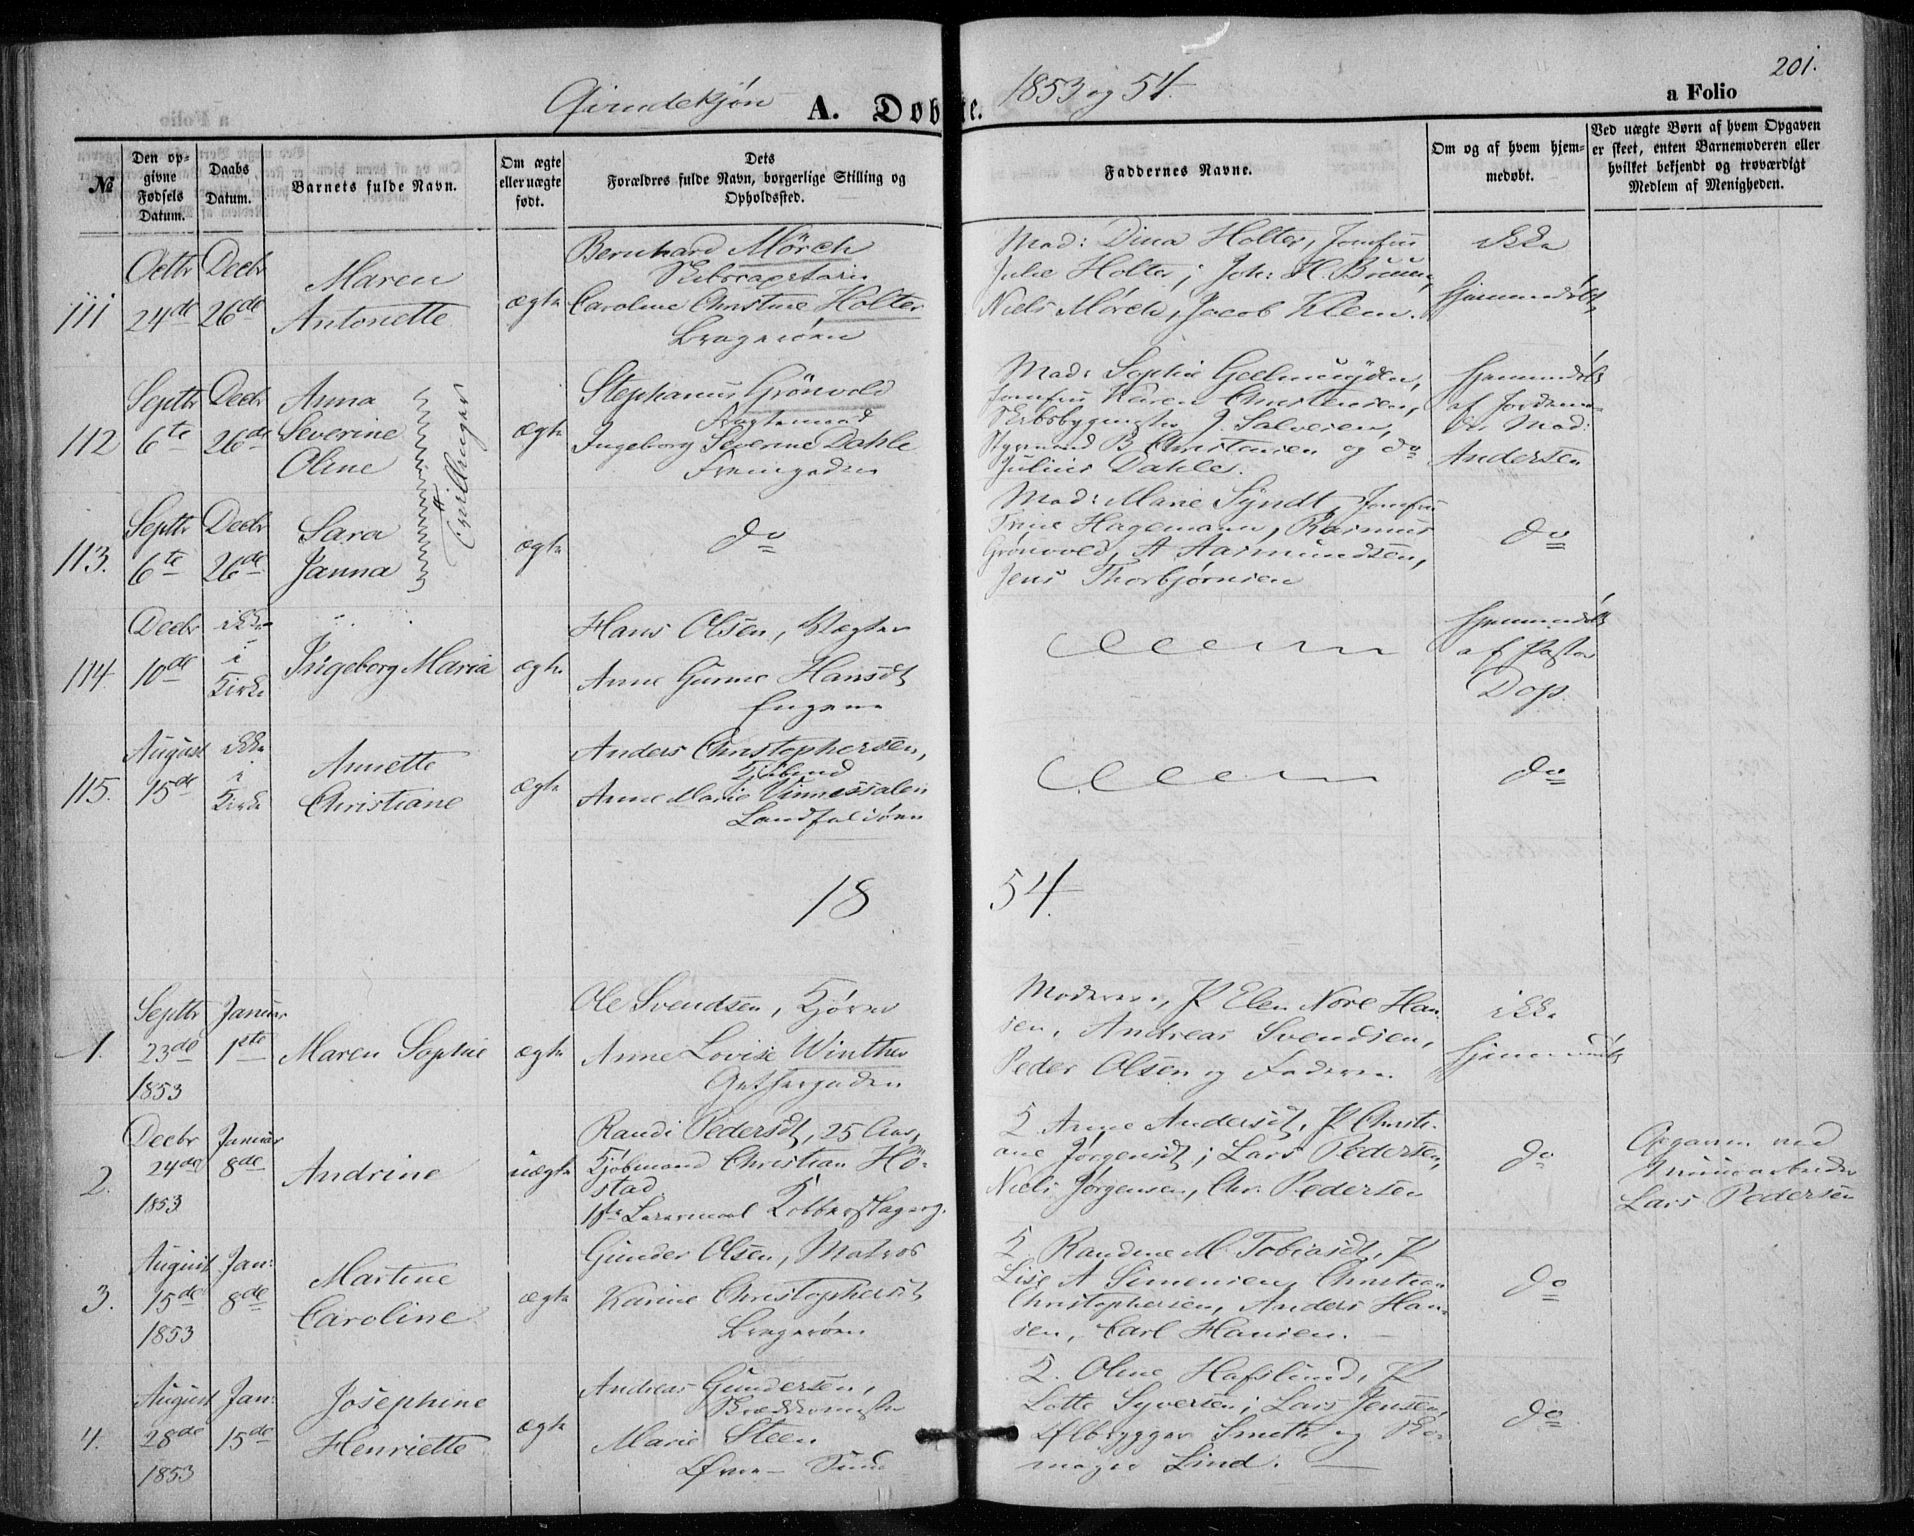 201.
Qvindekjøn
A. Døbte.
1853 og 54
a Folio
No
Den opgivne Fødsels Datum.
Daabs Datum.
Barnets fulde Navn.
Om ægte eller uægte født.
Dets Forældres fulde Navn, borgerlige Stilling og Opholdssted.
Faddernes Navne.
Om og af hvem hjemmedøbt.
Ved uægte Børn af hvem Opgaven er skeet, enten Barnemoderen eller hvilket bekjendt og troværdigt Medlem af Menigheden.
111
Octbr 24de
Decbr 26de
Maren
Antonette
ægte
Bernhard Mörch
Skibscapetain
Caroline Christine Holter
Bragerøen
Mad: Dina Holter, Jomfru
Julie Holter; Joh: H. Bruun,
Niels Mörch, Jacob Klem.
ikke
hjemmedøbt,
112
Septbr 6te
Decbr 26de
Anna
Severine
Oline
Tvillinger
ægte
Stephanus Grönvold
Fragtemand
Ingeborg Severine Dahle
Mad: Sophie Geelmuyden,
Jomfru Karen Christensen,
Skibsbygmester J. Salvesen,
Styrmand B Christensen og do
Julius Dahle.
hjemmedøbt
af Jordemoder Mad:
Andersen
113.
Septbr 6te
Decbr 26de
Sara
Janna
ægte
do
Mad: Marie Syndt, Jomfru
Trine Hagemann, Rasmus
Grönvold, A Aasmundsen,
Jens Thorbjørnsen
do
114
Decbr 10de
ikke
i
Kirke
Ingeborg Maria
ægte
Hans Olsen, Vægter
Anne Gurine Hansdt
Engene
hjemmedøbt
af Pastor
Dop.
115.
August 15de
ikke
i
Kirke
Annette
Christiane
ægte
Anders Christophersen,
Anne Marie Vinnessalen
Landfaldøen
do
18 54.
1.
Septbr 23de 1853
Januar 1ste
Maren Sophie
ægte
Ole Svendsen, Kjører
Anne Lovise Winther
Moderen, P Elen Nore Hansen, Andreas Svendsen,
Peder Olsen og Faderen
ikke
hjemmedøbt
2.
Decbr 24de 1853
Januar 8de
Andrine
uægte
Randi Pedersdt, 25 Aar,
Kjöbmand Christian Höstad
1ste Leiermaal Kobberslagerg.
K Anne Andersdt, P Christiane Jørgensdt; Lars Pedersen,
Niels Jørgensen, Chr. Pedersen
do
Opgaven ved
Muurarbeider
Lars Pedersen
3.
August 15de 1853
Jan: 8de
Martine
Caroline
ægte
Gunder Olsen, Matros
Karine Christophersdt
Bragerøen
K Randine M. Tobiasdt, P
Lise A Simensen, Christian
Christophersen, Anders Hansen, Carl Hansen.
do
4.
August 28de 1853
Jan: 15de
Josephine
Henriette
ægte
Andreas Gundersen,
Marie Steen
Øvre Sund
K. Oline Hafslund, P
Lotte Syversen; Lars Jensen,
Ølbrygger Smith og Skomager Lind.
do